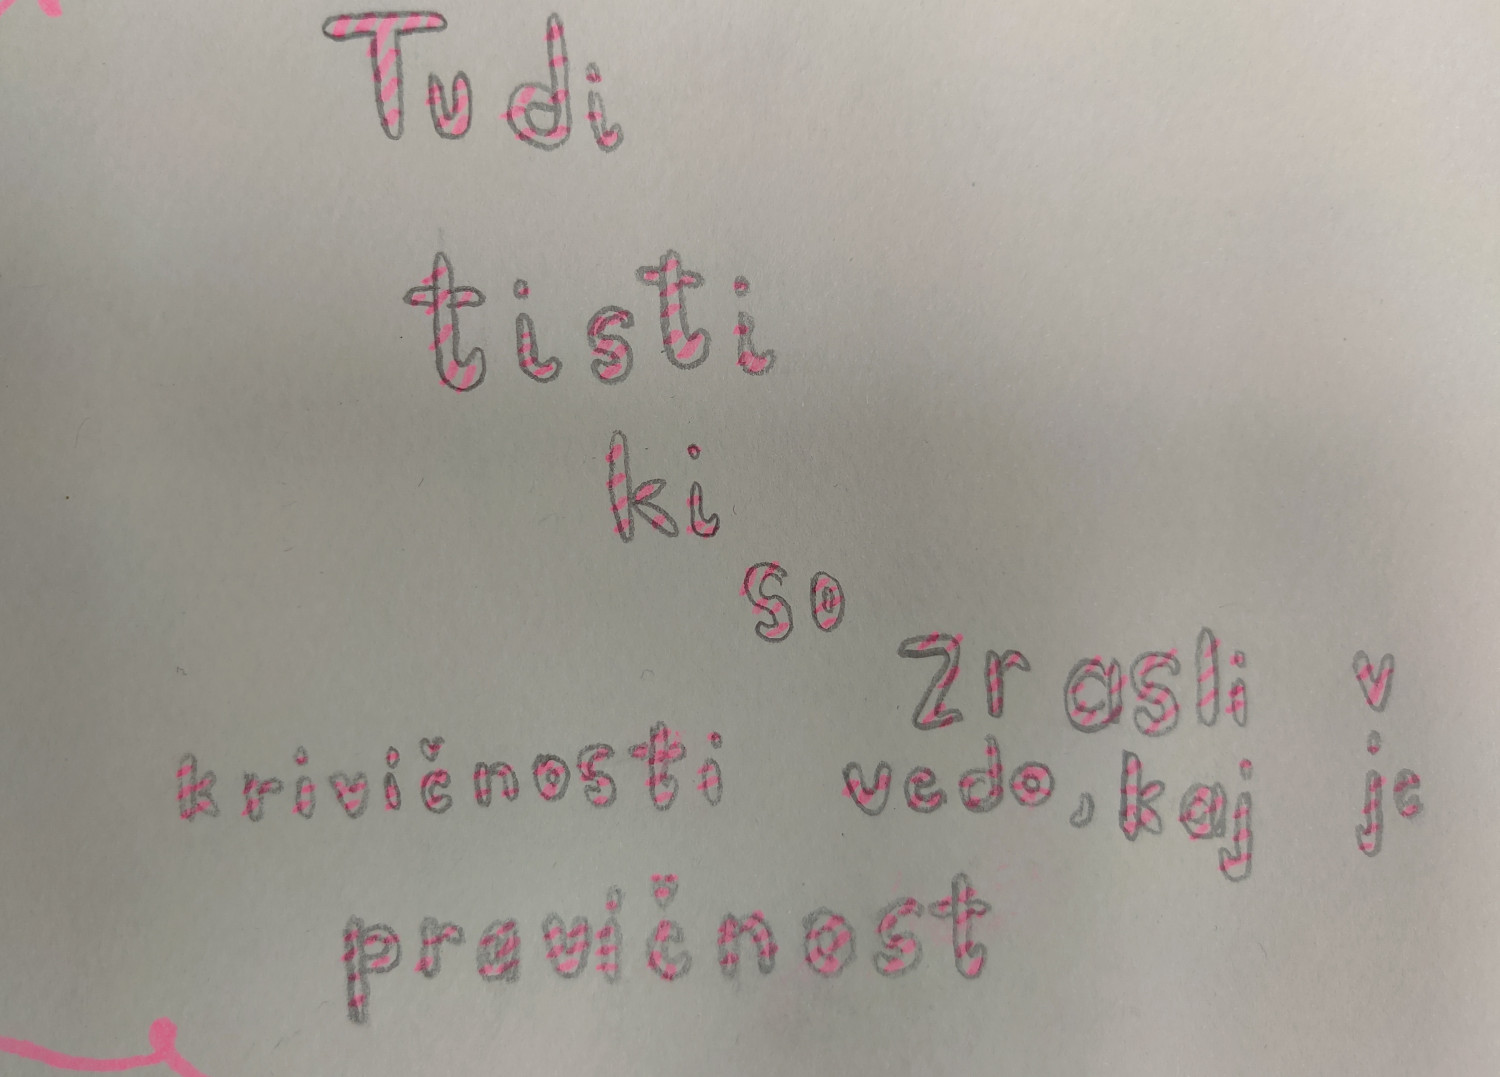 Tudi
tisti
ki
so
zrasli v
krivičnosti vedo, kaj je
pravičnost